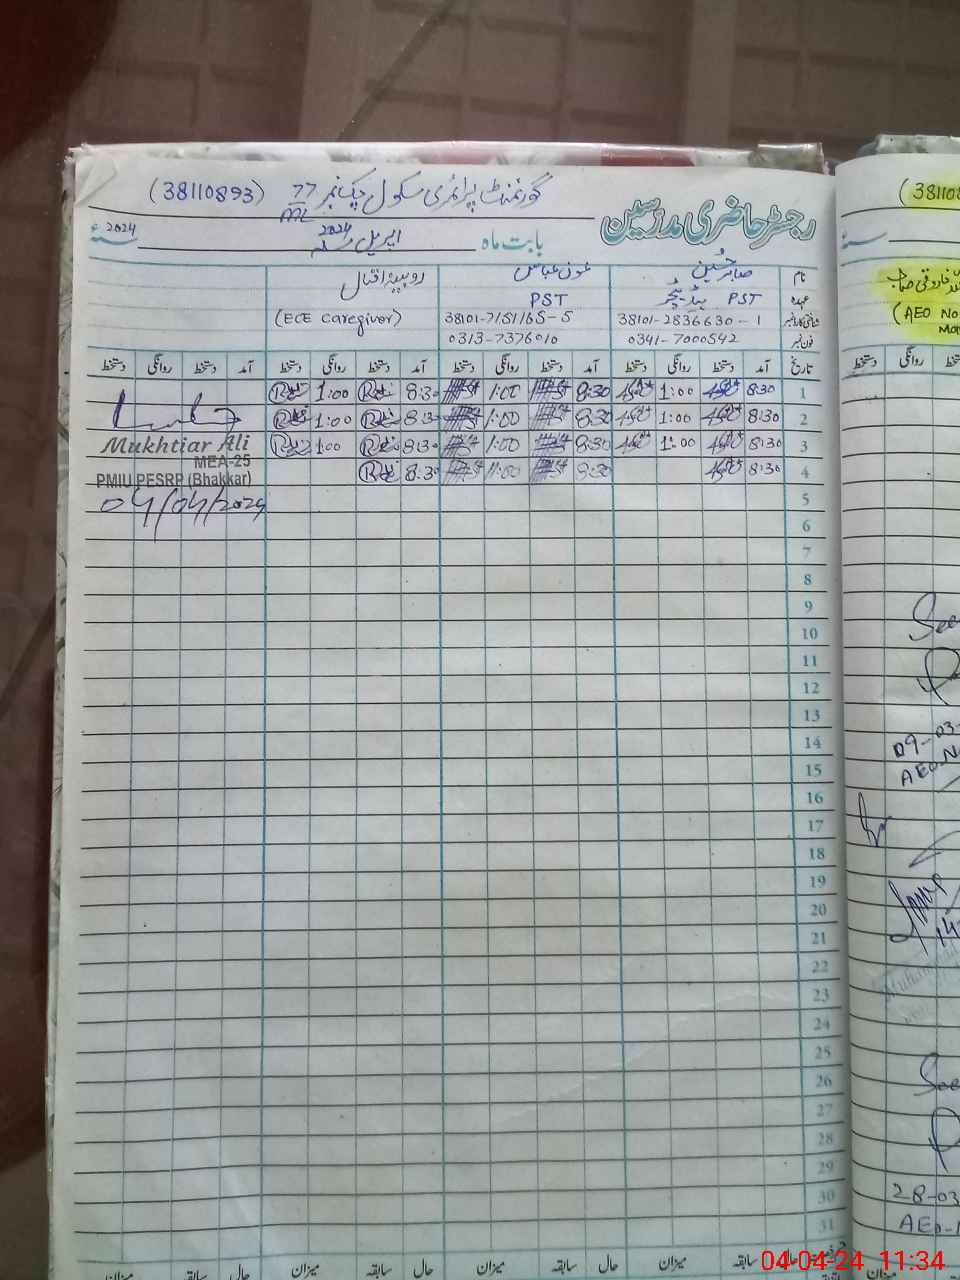 گورنمنٹ پرائمری سکول چک نمبر 77 ML (38110893)
رجسٹر حاضری مدرسین
بابت ماہ اپریل 2024 سنہ 2024
نام صابر حسین عون عباس روبینہ اقبال
عہدہ PST ہیڈ ٹیچر PST (ECE Caregiver)
شناختی کارڈ نمبر 38101-2836630-1 38101-7151165-5
فون نمبر 0341-7000542 0313-7376010
تاریخ آمد دستخط روانگی دستخط آمد دستخط روانگی دستخط آمد دستخط روانگی دستخط آمد دستخط روانگی دستخط
1 8:30 1:00 8:30 1:00 8:30 1:00
2 8:30 1:00 8:30 1:00 8:30 1:00
3 8:30 1:00 8:30 1:00 8:30 1:00
4 8:30 8:30 11:00 8:30
Mukhtiar Ali
MEA-25
PMIU PESRP (Bhakkar)
04/04/2024
5
6
7
8
9
10
11
12
13
14
15
16
17
18
19
20
21
22
23
24
25
26
27
28
29
30
31
حال سابقہ میزان حال سابقہ میزان حال سابقہ میزان حال سابقہ میزان
(381108
(AEO No
دستخط روانگی
See
09-03-
AEO.N
See
28-03
AEO-
04-04-24 11:34